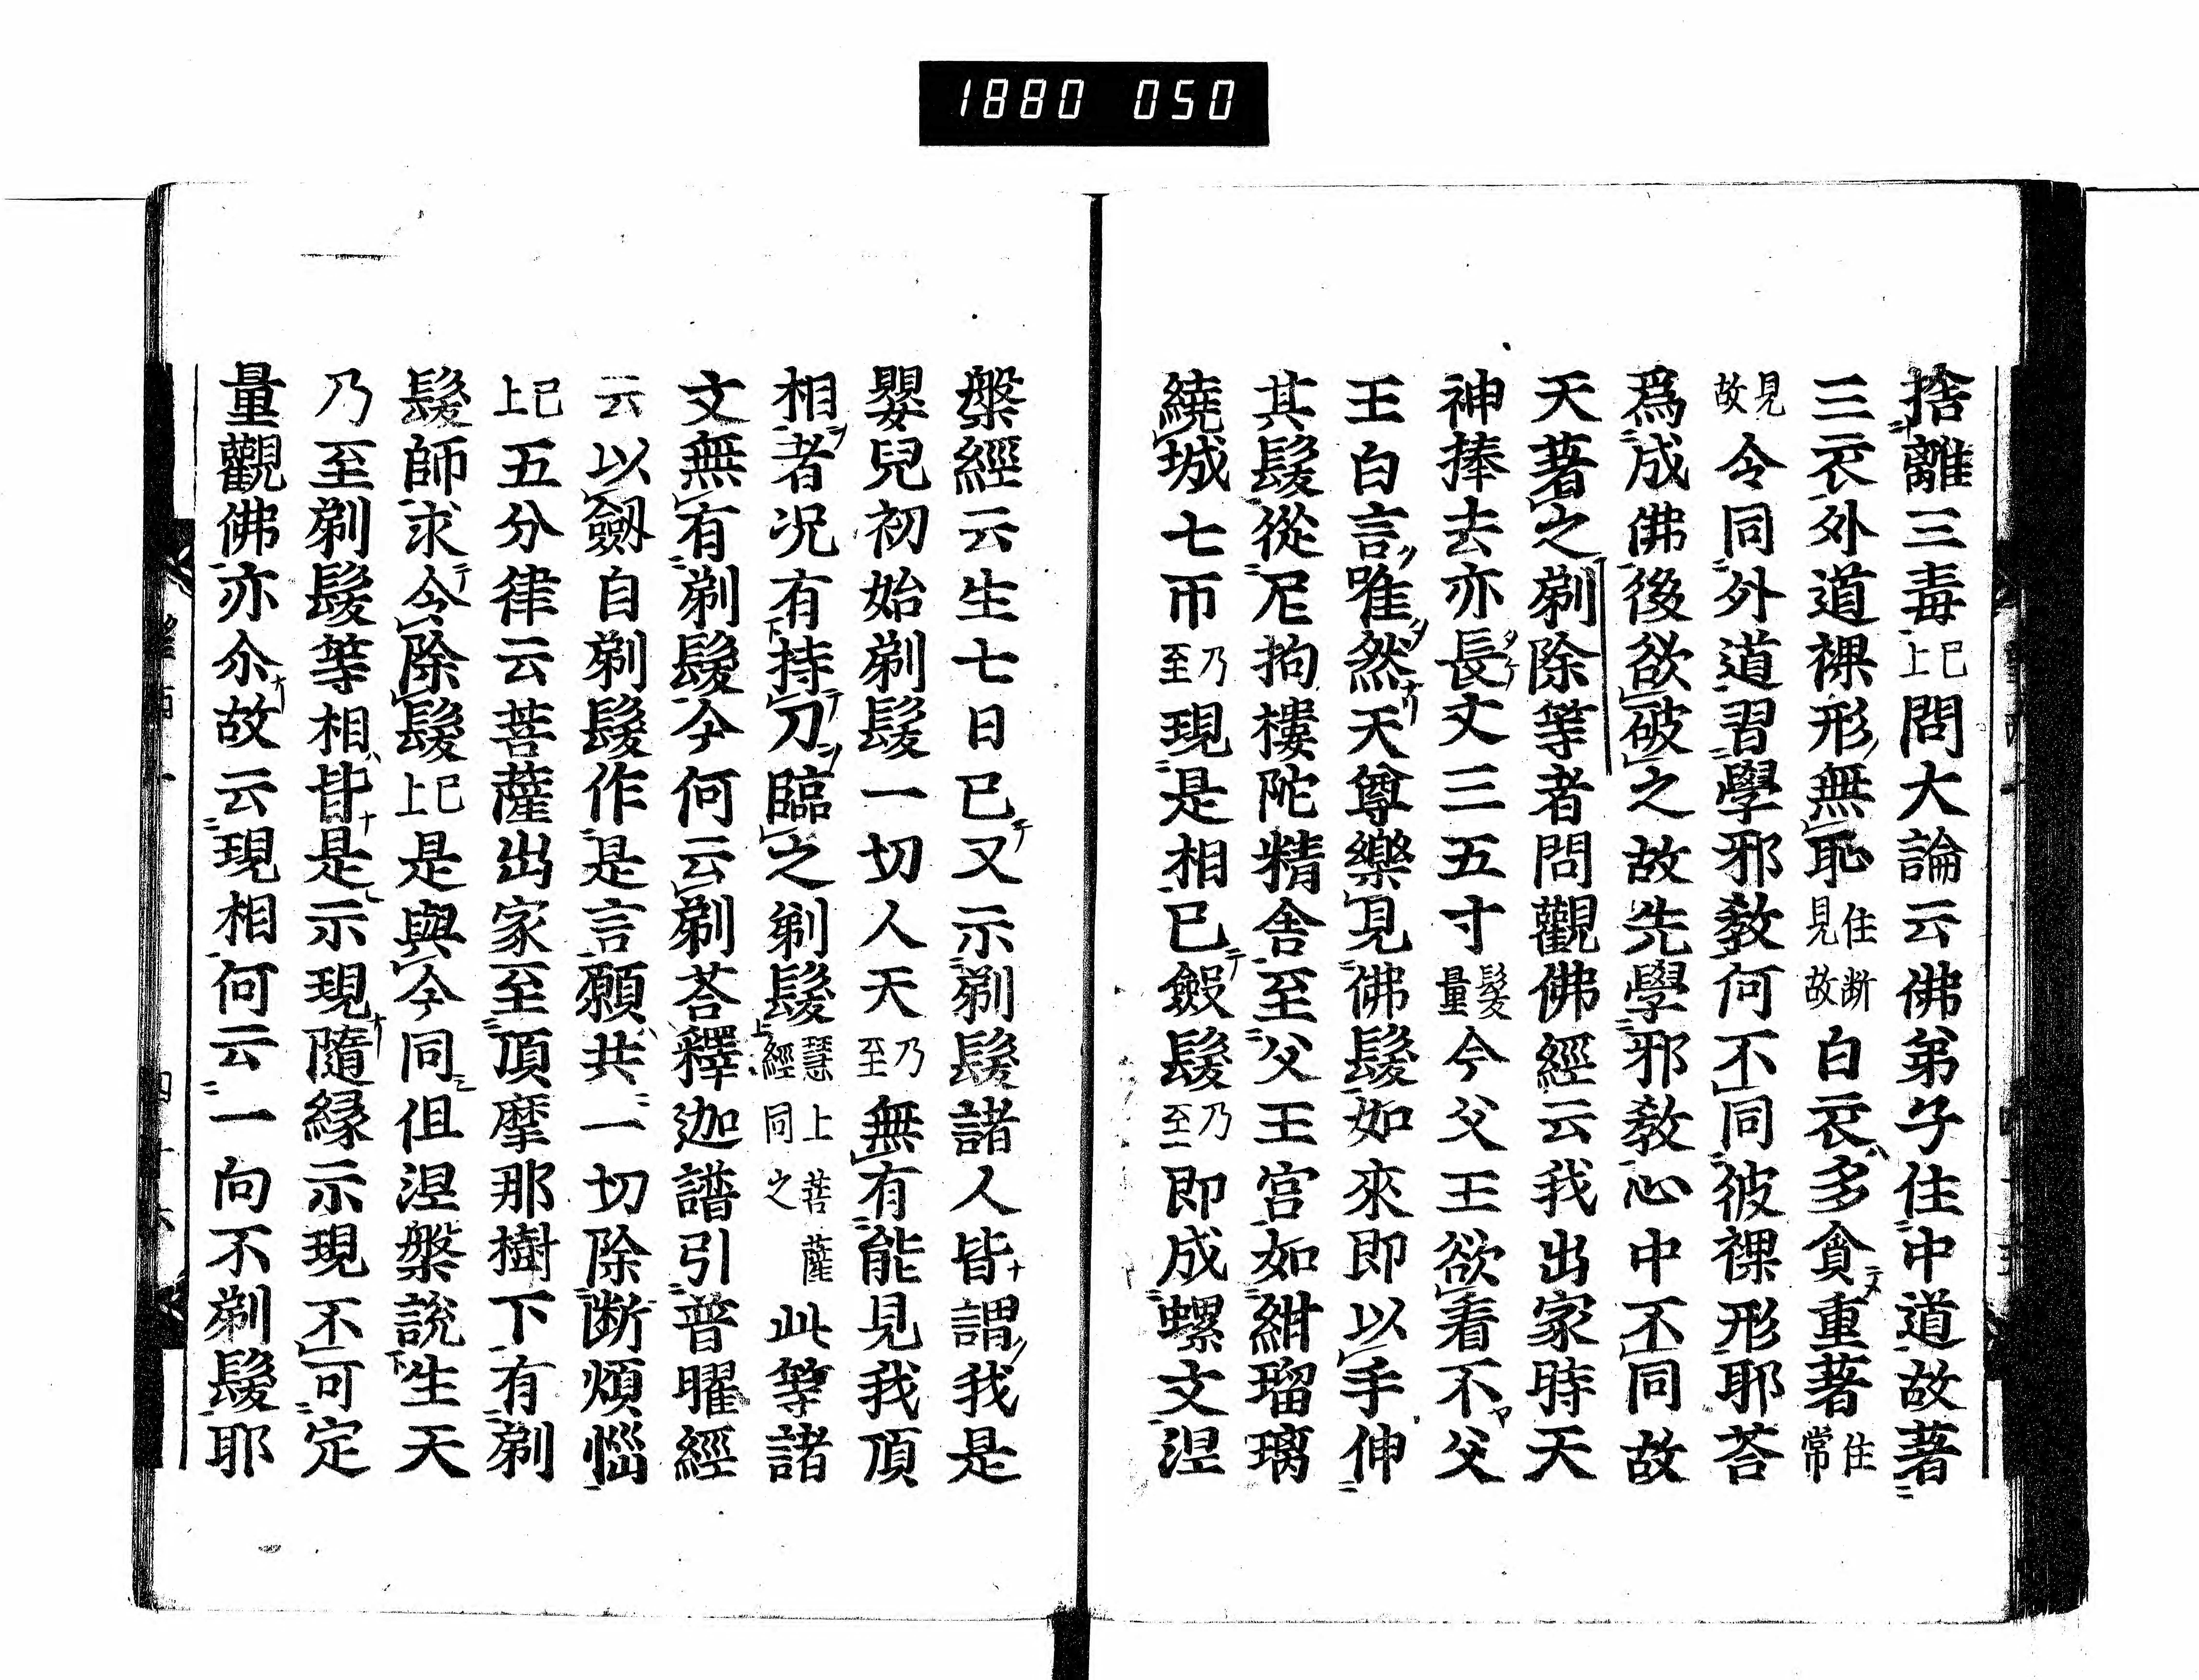 1880 050
捨離三毒已上問大論云佛弟子住中道故著
三衣外道裸形無恥住断見故白衣多貪重著住常
見故令同外道習學邪教何不同彼裸形耶荅
爲成佛後欲破之故先學邪教心中不同故
天著之剃除等者問觀佛經云我出家時天
神捧去亦長丈三五寸髮量今父王欲看不父
王白言唯然天尊樂見佛髮如來即以手伸
其髮從尼拘樓陀精舎至父王宮如紺瑠璃
繞城七帀乃至現是相已斂髮乃至即成螺文涅
槃經云生七日已又示剃髮諸人皆謂我是
嬰兒初始剃髮一切人天乃至無有能見我頂
相者况有持刀臨之剃髮慧上菩薩經同之此等諸
文無有剃髮今何云剃荅釋迦譜引普曜經
云以劔自剃髮作是言願共一切除断煩惱
已上五分律云菩薩出家至頂摩那樹下有剃
髮師求令除髮已上是與今同但涅槃說生天
乃至剃髮等相皆是示現隨縁示現不可定
量觀佛亦尒故云現相何云一向不剃髮耶